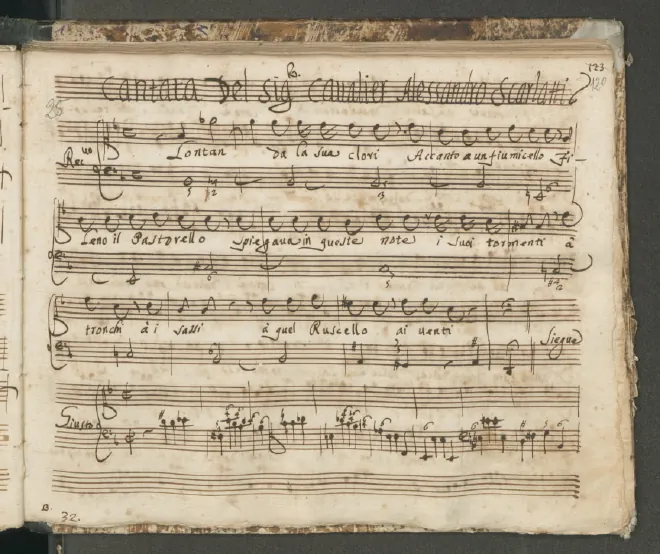 123
120
25
Cantata Del Sigr. Cavalier Alessandro Scarlatti
Recvo Lontan da la sua clori Accanto a un fiumicello Fi-
leno il Pastorello spiegava in queste note i suoi tormenti à
tronchi à i sassi à quel Ruscello ai venti
Siegue
Giusto
32.